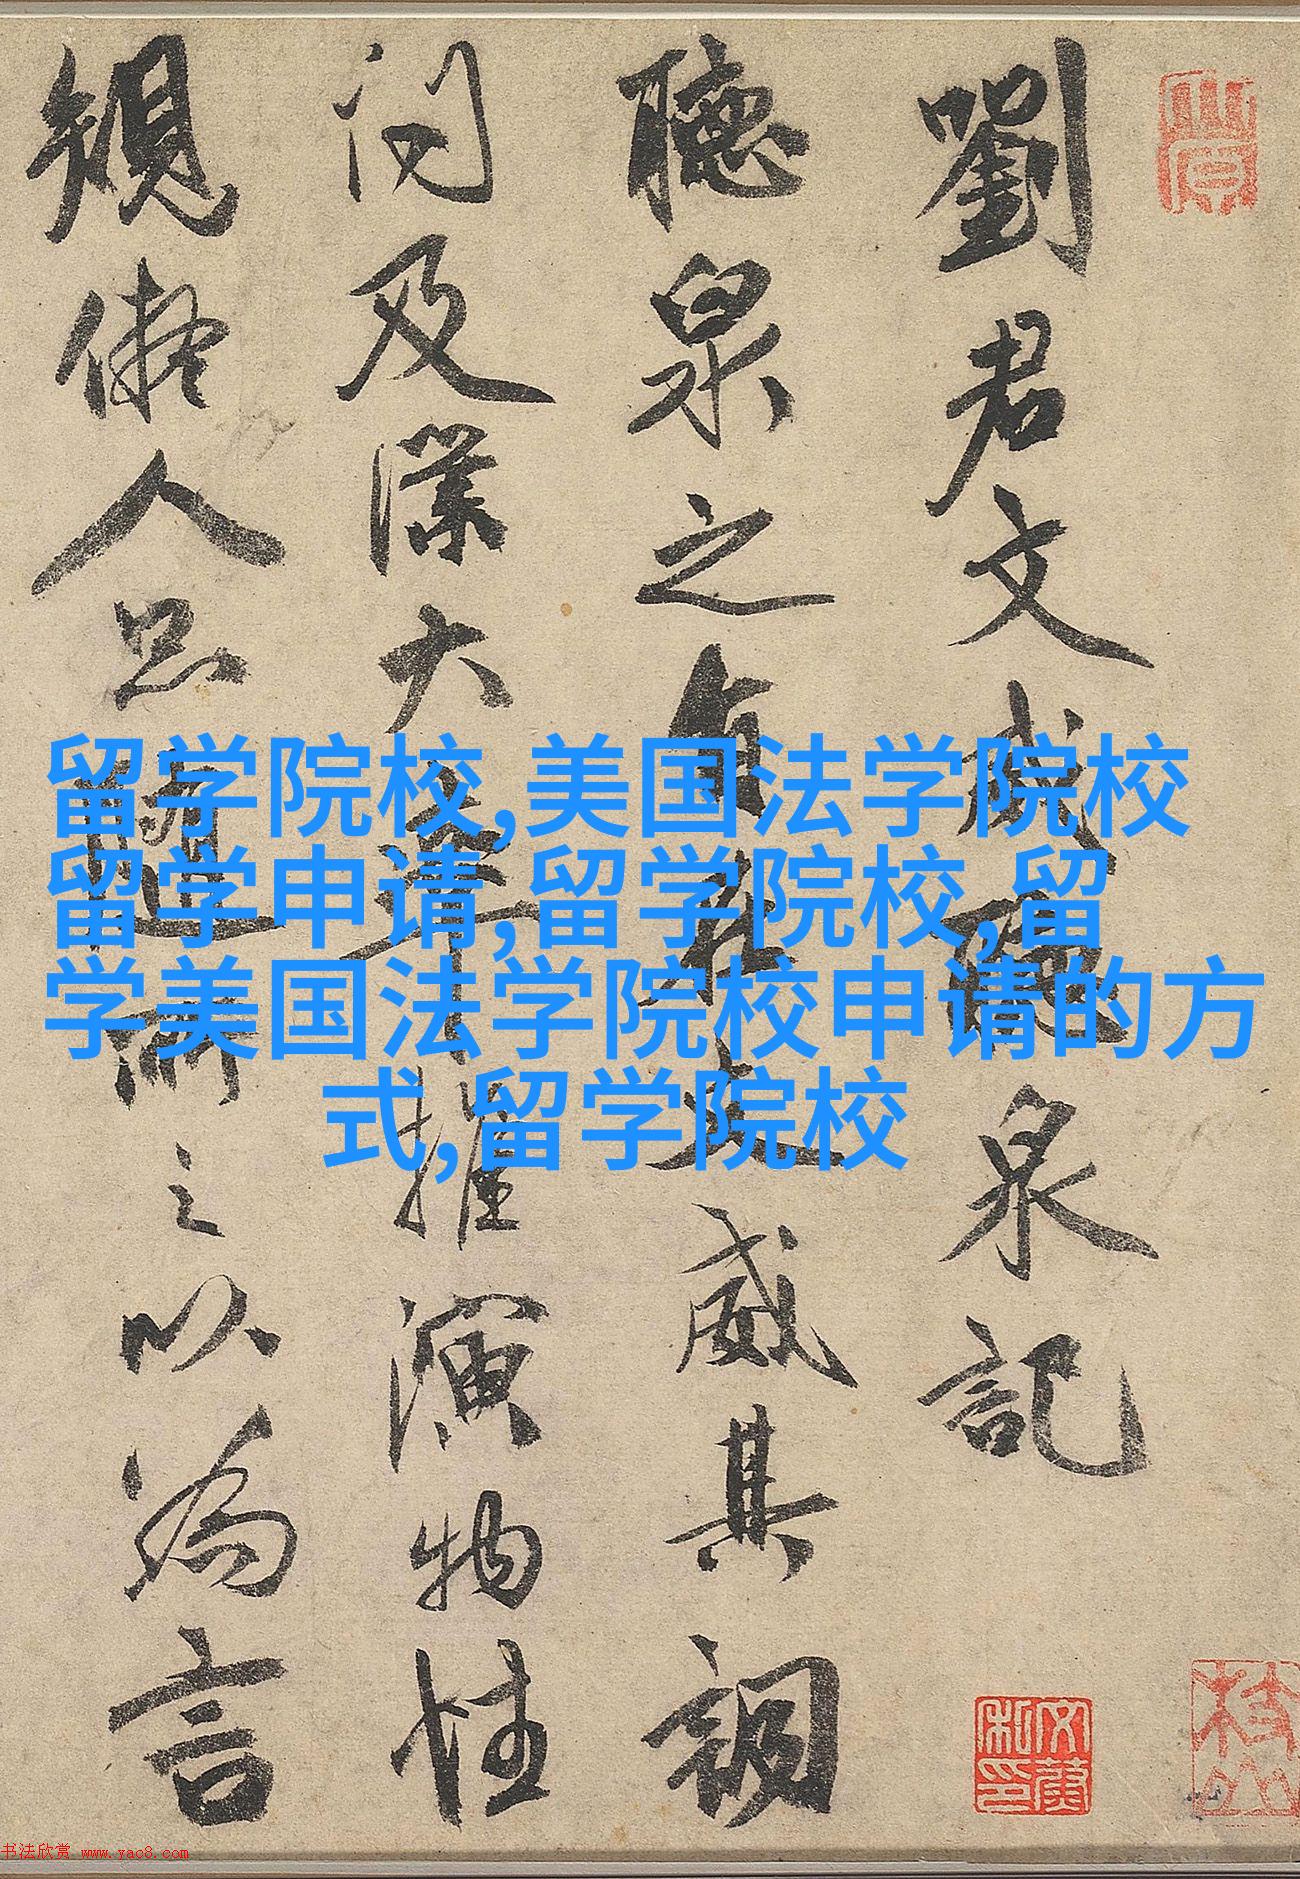 劉君文成聽泉記
聽泉之威其調
及大推演物性
規儗人品所之以為言
枝山
留学院校,美国法学院校
留学申请,留学院校,留
学美国法学院校申请的方
式,留学院校
书法欣赏 www.yac8.com